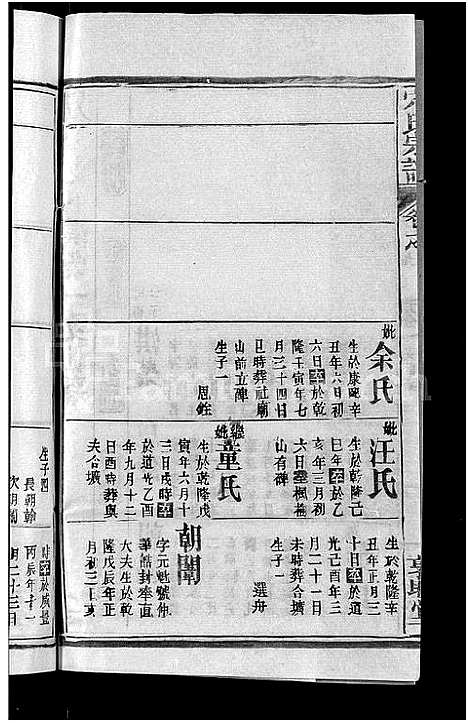 宋氏宗譜
妣余氏
生於康熙辛
丑年六月初
六日卒於乾
隆壬寅年七
月三十四日
巳時葬社廟
山前立碑
生子一
恩銓
妣汪氏
生於乾隆己
巳年卒於乙
亥年三月初
六日卒楓樹
山有碑
繼妣童氏
生於乾隆戊
寅年六月十
三日戌時卒
於道光乙酉
年九月十二
日酉時葬與
夫合墳
生於乾隆辛
丑年正月三
十日卒於道
光己酉年三
月二十一日
未時葬合墳
生子一
選舟
朝闈
字元魁號仲
華誥封奉直
大夫生於乾
隆戊辰年正
月初三日亥
生子四
長朝翰
時卒於咸豐
丙辰年十一
月二十三日